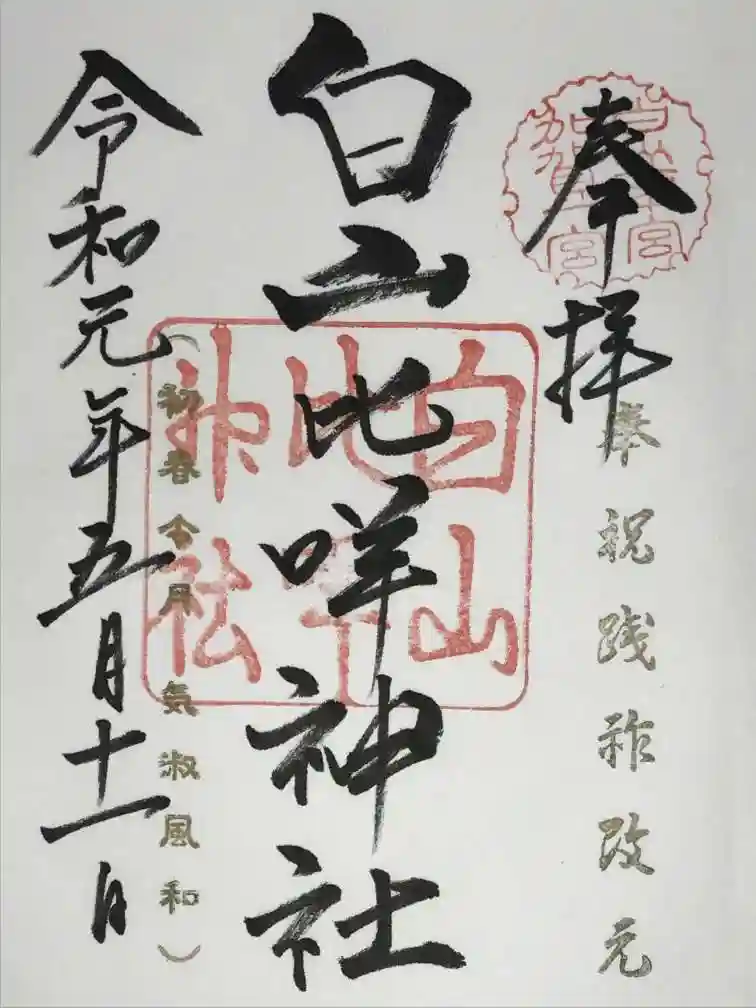 奉拝
奉祝践祚改元
白山比咩神社
白山比咩神社
(初春令月 気淑風和)
令和元年五月十一日